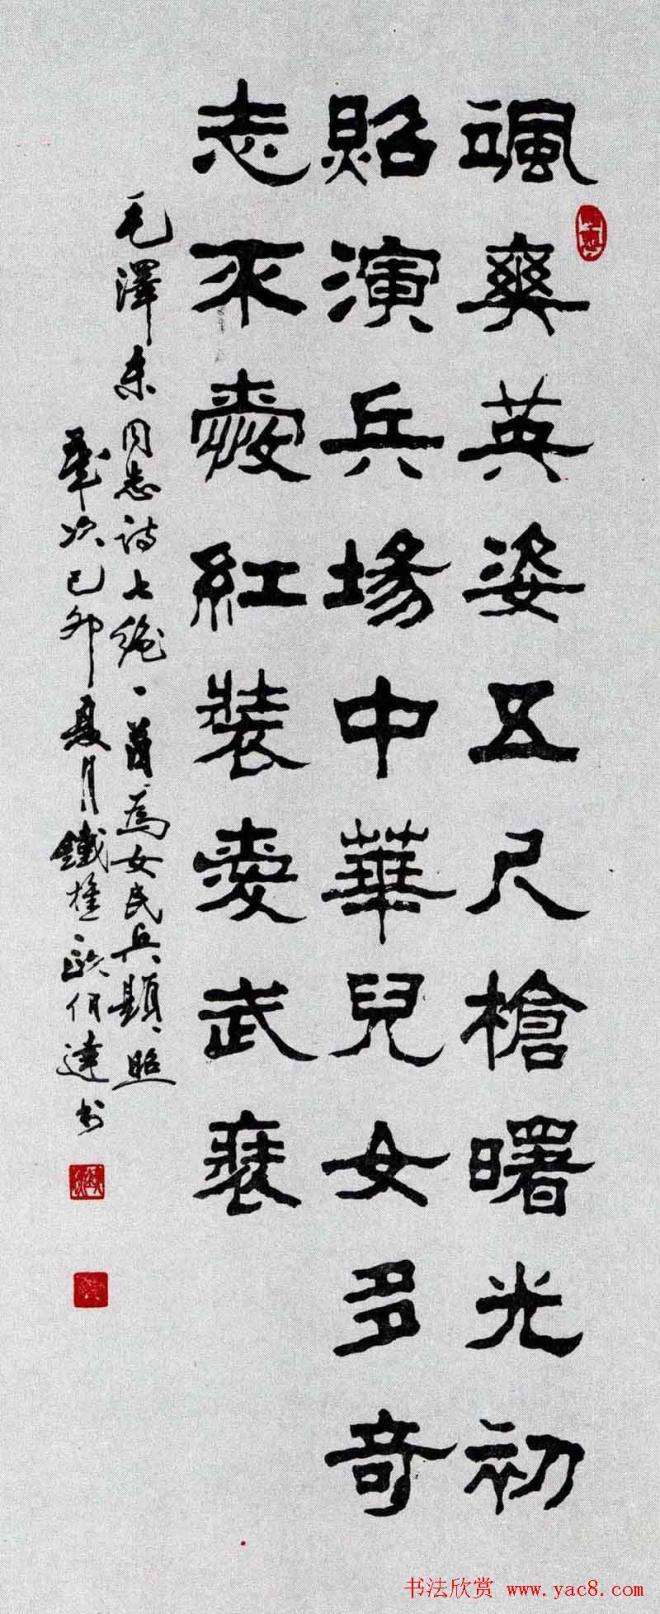 颯爽英姿五尺槍曙光初
照演兵場中華兒女多奇
志不愛紅裝愛武裝
毛澤东同志诗七绝一首為女民兵題照
歲次己卯夏月鐵雄欧伯達书
书法欣赏 www.yac8.com